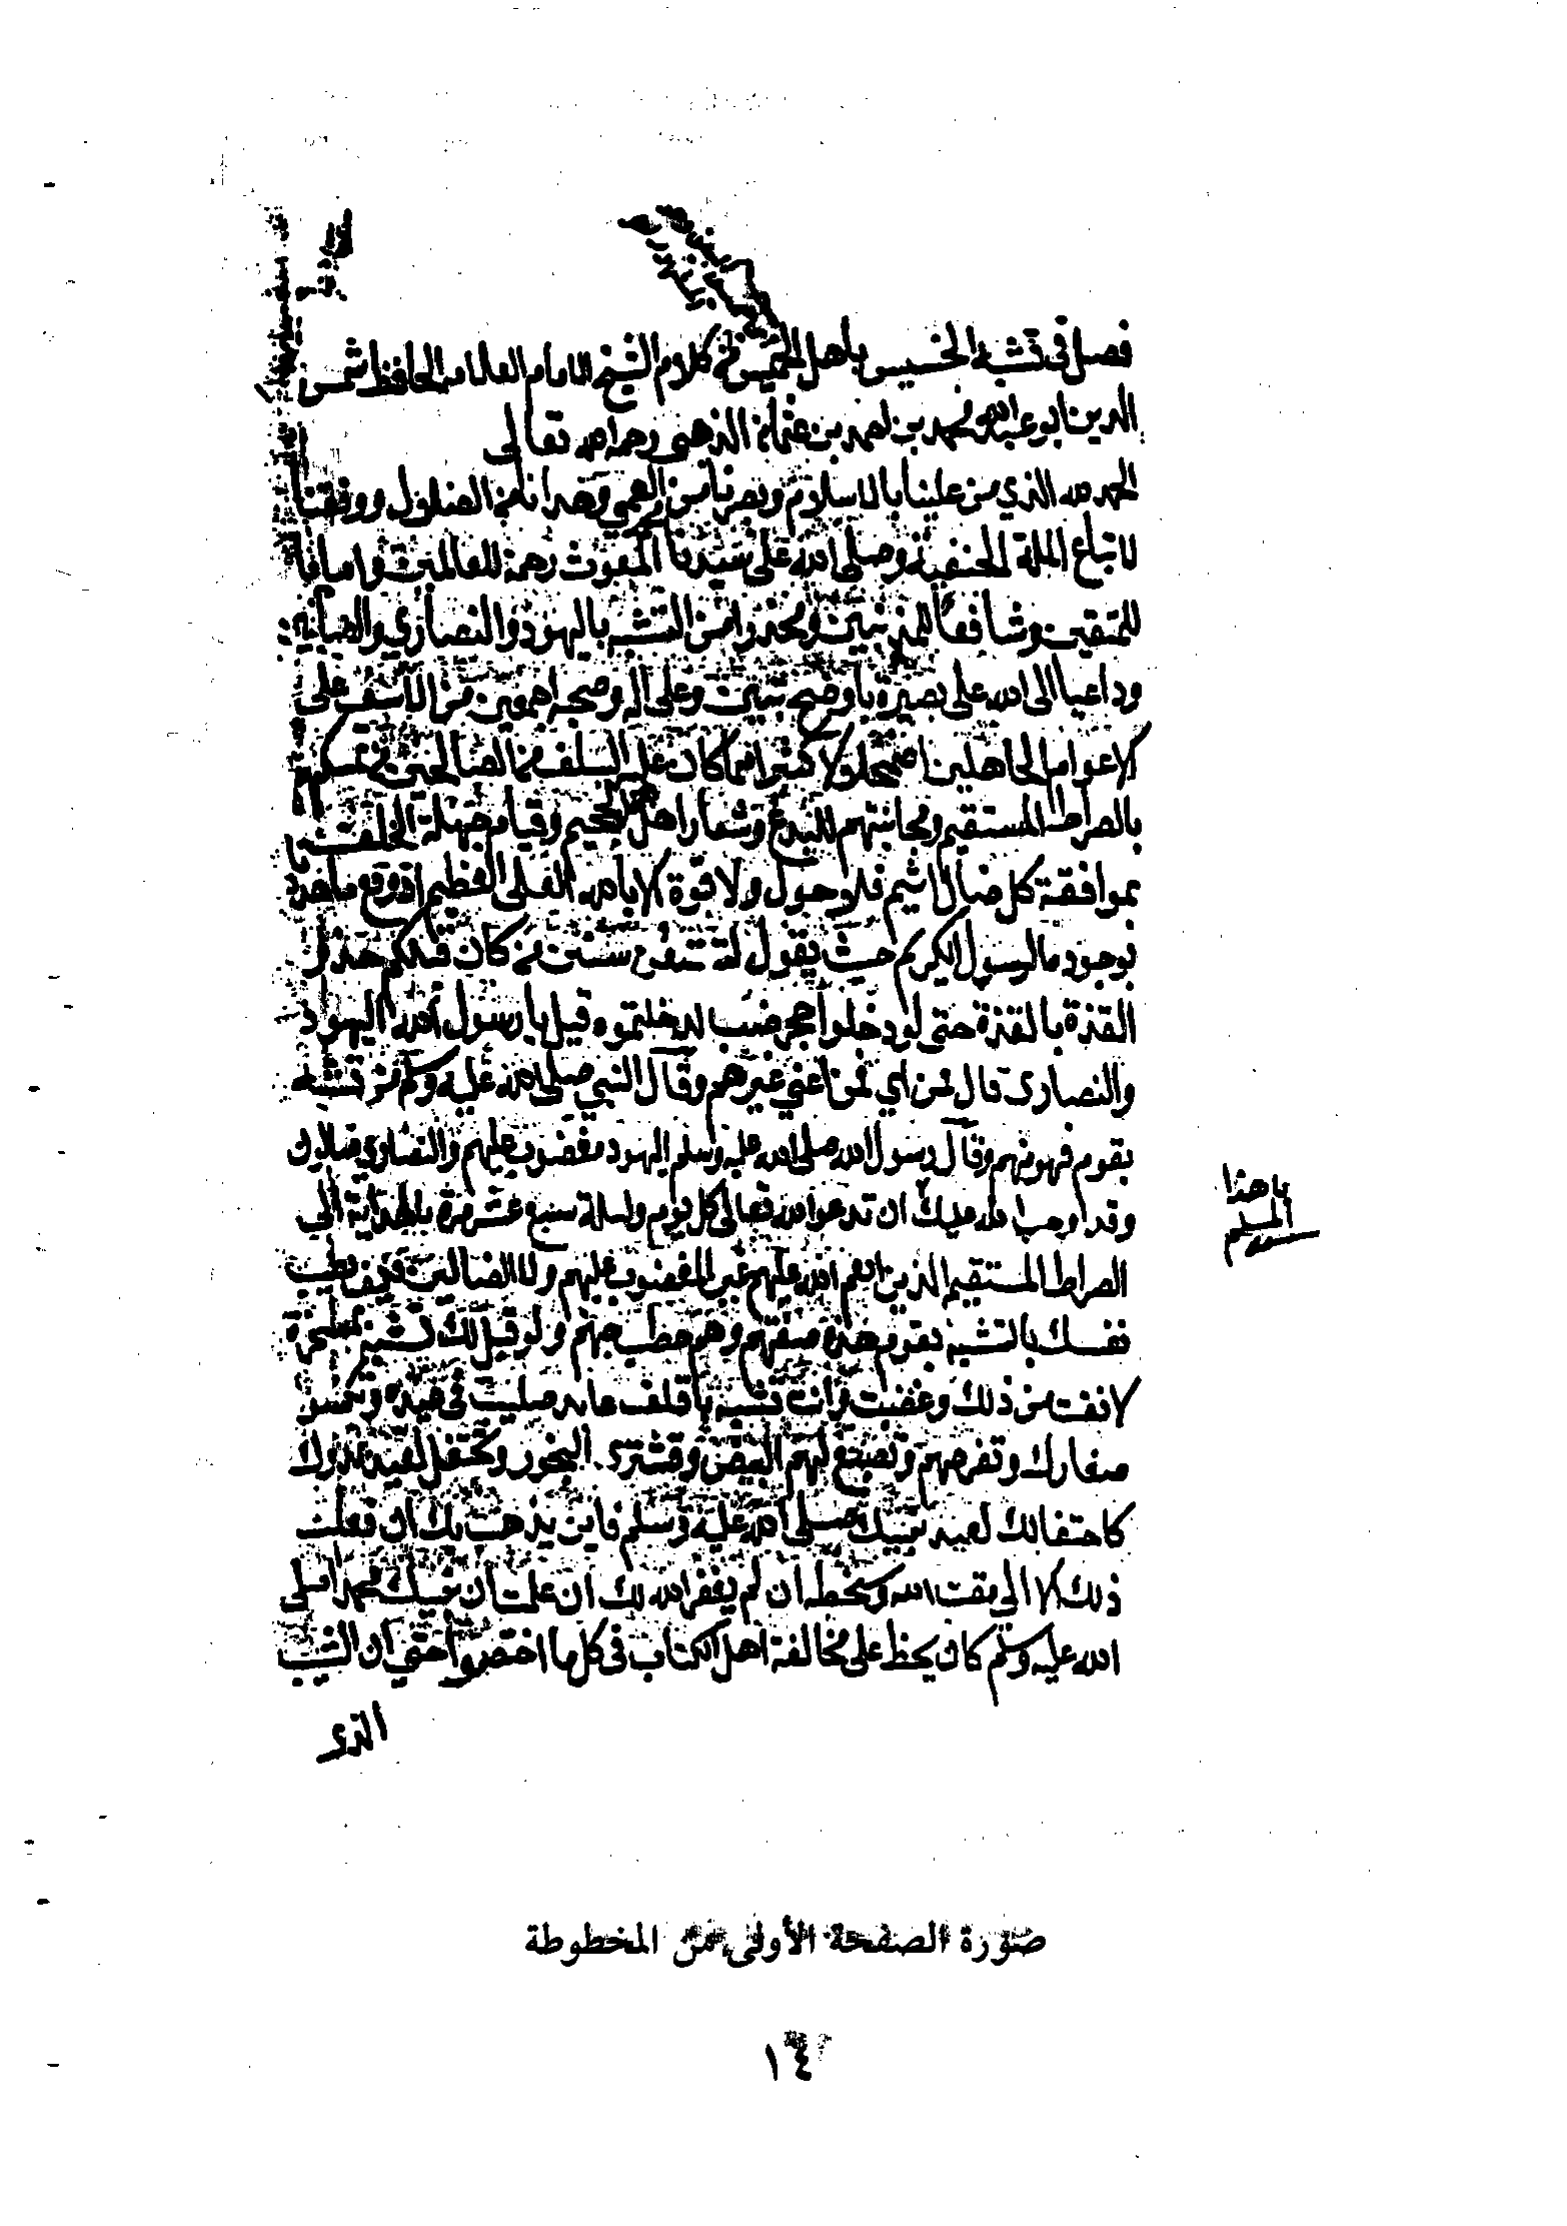 فصل في تشبه الخسيس باهل الخميس من كلام الشيخ الامام العلامه الحافظ شمس
الدين ابو عبدالله محمد بن احمد بن عثمان الذهبي رحمه الله تعالى
الحمد لله الذي من علينا بالاسلام وبصرنا من العمي وهدانا من الضلال ووفقنا
لاتباع الملة الحنفية وصلى الله على سيدنا المبعوث رحمة للعالمين واماما
للمتقين وشافعا للمذنبين ومحذرا من التشبه باليهود والنصارى والصابية
وداعيا الى الله على بصيرة باوضح تبيين وعلى اله وصحبه اجمعين من الاسف على
الاعوام الجاهلين اضمحلو لا كثيرا مما كان عليه السلف من الصالحين من تمسكهم
بالصراط المستقيم ومجانبتهم للبدع وشعار اهل الجحيم وقيام جهلة الخلف
بموافقة كل ضال اثيم فلا حول ولا قوة الا بالله العلي العظيم اذ وقع ما اخبر
بوجوده الرسول الكريم حيث يقول لتتبعن سنن من كان قبلكم حذو
القذة بالقذة حتى لو دخلوا حجر ضب لدخلتموه قيل يا رسول الله اليهود
والنصارى قال فمن اي فمن اعني غيرهم وقال النبي صلى الله عليه وسلم من تشبه
بقوم فهو منهم وقال رسول الله صلى الله عليه وسلم اليهود مغضوب عليهم والنصارى ضلال
وقد اوجب الله عليك ان تدعو الله تعالى كل يوم وليلة سبع عشر مرة بالهداية الي
الصراط المستقيم الذين انعم الله عليهم غير المغضوب عليهم ولا الضالين فكيف تطيب
نفسك بالتشبه بقوم هذه صفتهم وهم حطب جهنم ولو قيل لك تشبه بمسخرة
لانفت من ذلك وغضبت وانت تشبه باقلف عابد صليب في عيده وتكسو
صغارك وتفرحهم وتصبغ لهم البيض وتشتري البخور وتحتفل لعيد عدوك
كاحتفالك لعيد نبيك صلى الله عليه وسلم فاين يذهب بك ان فعلت
ذلك الا الي مقت الله وسخطه ان لم يغفر الله لك ان علمت ان نبيك محمدا صلى
الله عليه وسلم كان يحظ على مخالفة اهل الكتاب في كل ما اختصوا حتي ان الشيب
الذي
يا هذا
المسلم
صورة الصفحة الأولى من المخطوطة
١٤